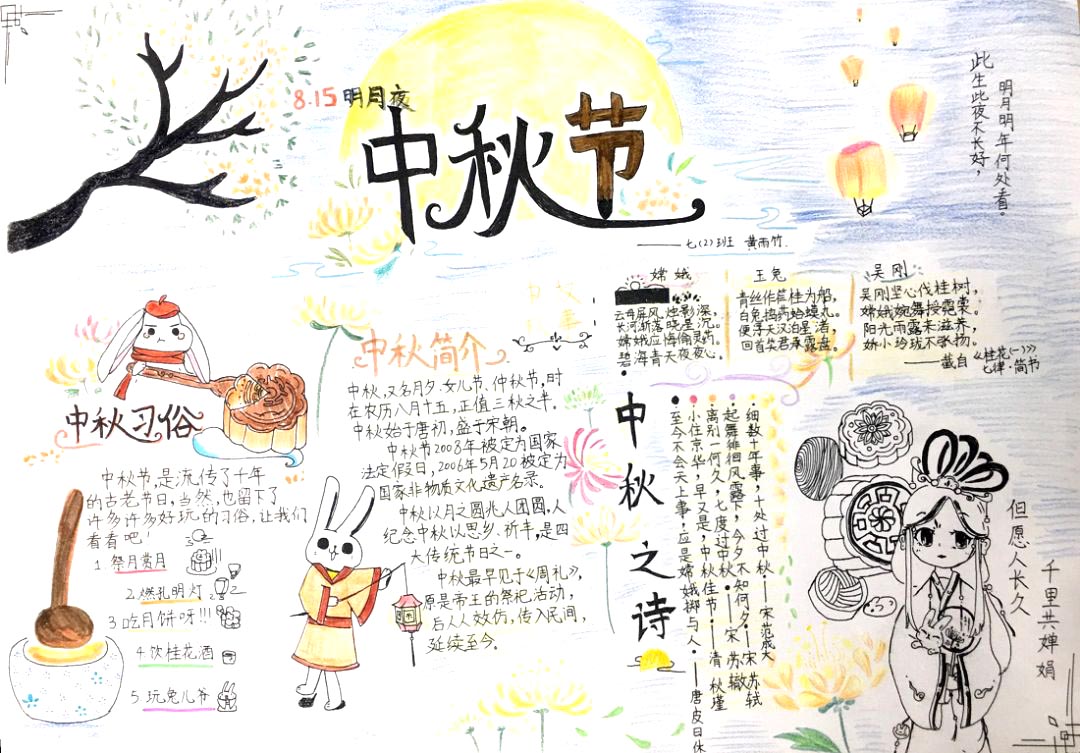 8.15明月夜
中秋节
——七(2)班 黄雨竹.
此生此夜不长好,
明月明年何处看。
嫦娥
云母屏风烛影深,
长河渐落晓星沉。
嫦娥应悔偷灵药,
碧海青天夜夜心。
玉兔
青丝作笮桂为船,
白兔捣药蛤蟆丸。
便浮天汉泊星渚,
回首笑君承露盘。
吴刚
吴刚坚心伐桂树,
嫦娥婉舞授霓裳。
阳光雨露来滋养,
娇小玲珑不张扬。
——戴白《桂花(一)》
七律·简书
中秋习俗
中秋节,是流传了千年
的古老节日,当然,也留下了
许多许多好玩的习俗,让我们
看看吧!
1 祭月赏月
2.燃孔明灯
3 吃月饼呀!!!
4 饮桂花酒
5 玩兔儿爷
中秋简介
中秋,又名月夕、女儿节、仲秋节,时
在农历八月十五,正值三秋之半。
中秋始于唐初,盛于宋朝。
中秋节2008年被定为国家
法定假日,2006年5月20被定为
国家非物质文化遗产名录。
中秋以月之圆兆人团圆,人
纪念中秋以思乡、祈丰,是四
大传统节日之一。
中秋最早见于《周礼》,
原是帝王的祭祀活动,
后人人效仿,传入民间,
延续至今。
中秋之诗
细数十年事,十处过中秋·——宋范成大
起舞徘徊风露下,今夕不知何夕·——宋苏轼
离别一何久,七度过中秋·——宋苏辙
小住京华,早又是,中秋佳节·——清秋瑾
至今不会天上事,应是嫦娥掷与人·——唐皮日休
但愿人长久
千里共婵娟